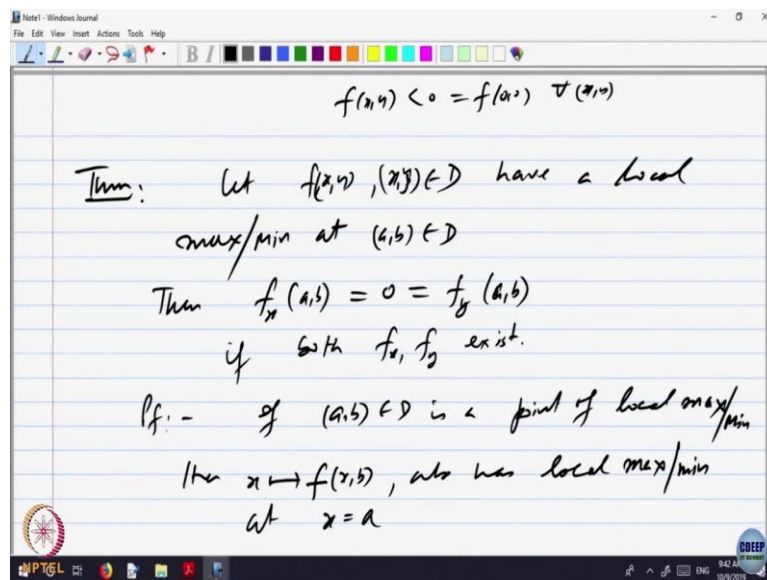 Note1 - Windows Journal
File Edit View Insert Actions Tools Help
B I
f(x,y) < 0 = f(0,0) ∀ (x,y)
Thm: Let f(x,y), (x,y) ∈ D have a local
max/min at (a,b) ∈ D
Then f_x (a,b) = 0 = f_y (a,b)
if both f_x, f_y exist.
Pf: - If (a,b) ∈ D is a point of local max/min
then x ↦ f(x,b), also has local max/min
at x = a
NPTEL
CDEEP
IIT BOMBAY
ENG
9:42 AM
10/9/2019